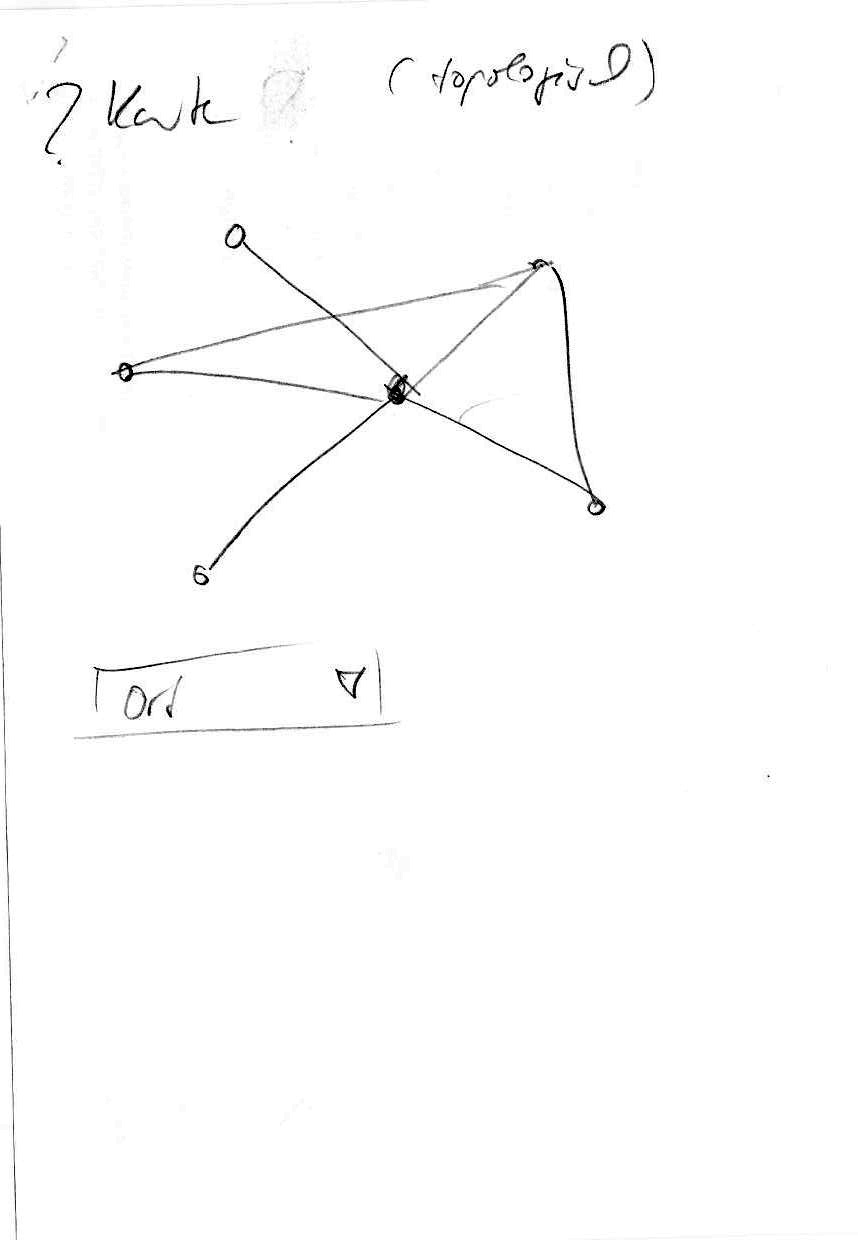 ? Karte (topologisch)
Ort